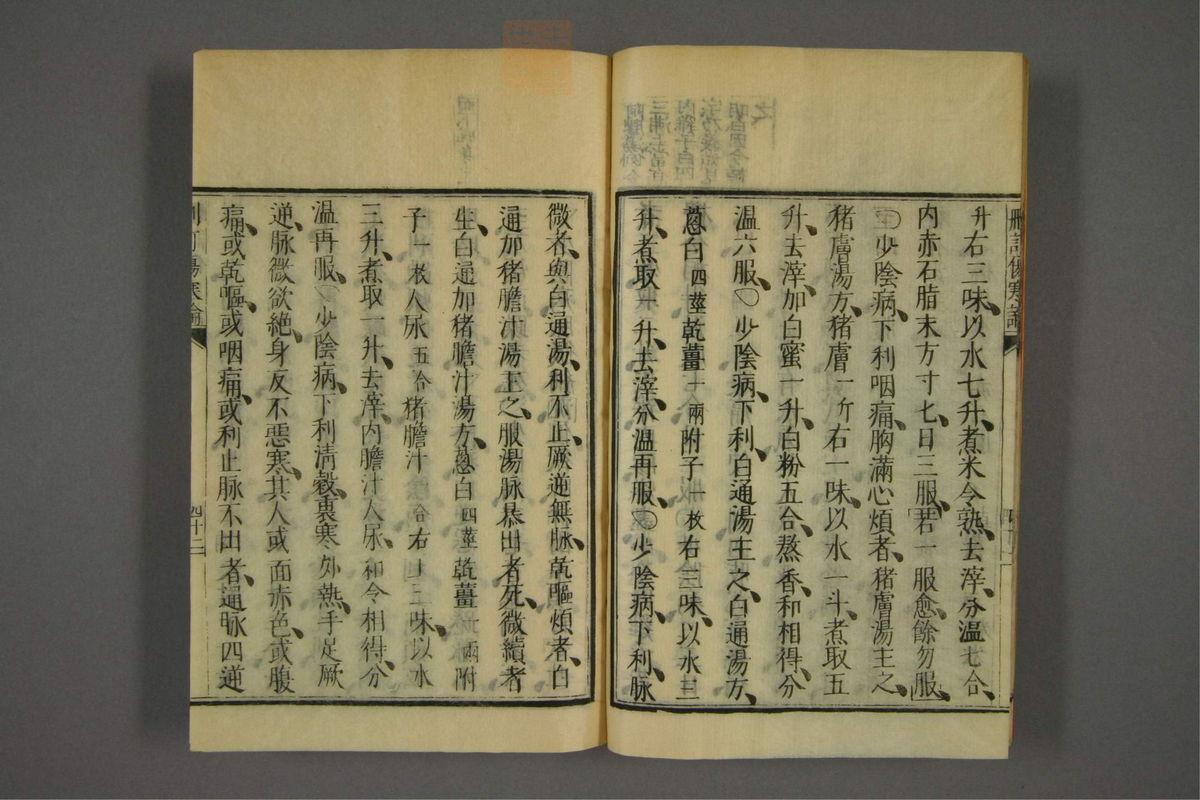 刪訂傷寒論
升右三味、以水七升、煮米令熟、去滓、分溫七合、
内赤石脂末方寸匕、日三服、「若一服愈、餘勿服」、
○少陰病、下利咽痛、胸滿心煩者、猪膚湯主之、
猪膚湯方、猪膚一斤右一味、以水一斗、煮取五
升、去滓、加白蜜一升、白粉五合、熬香、和相得、分
溫六服、○少陰病、下利、白通湯主之、白通湯方、
葱白四莖乾薑一兩附子一枚右三味、以水三
升、煮取一升、去滓、分溫再服、○少陰病、下利、脉
微者、與白通湯、利不止、厥逆無脉、乾嘔煩者、白
通加猪膽汁湯主之、服湯脉暴出者死、微續者
生、白通加猪膽汁湯方、葱白四莖乾薑一兩附
子一枚人尿五合猪膽汁一合右上三味、以水
三升、煮取一升、去滓、内膽汁人尿、和令相得、分
溫再服、○少陰病、下利清穀、裏寒外熱、手足厥
逆、脉微欲絶、身反不惡寒、其人或面赤色、或腹
痛、或乾嘔、或咽痛、或利止脉不出者、通脉四逆
刪訂傷寒論
四十二